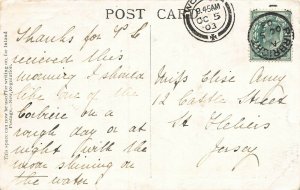 POST CARD
This space may now be used for writing on, for Inland
8.45AM
OC 5
03
Thanks for P.C
received this
morning I should
like one of the
Corbiere on a
rough day or at
night (with the
moon shining on
the water)
Miss Elsie Amy
12 Castle Street
St Heliers
Jersey